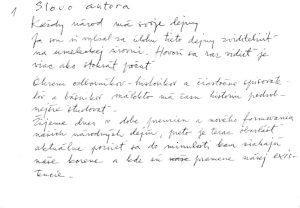 1 Slovo autora
Každý národ má svoje dejiny
Ja som si vybral za úlohu tieto dejiny zviditeľniť
na umeleckej úrovni. Hovorí sa raz vidieť je
viac ako stokrát počuť.
Okrem odborníkov - historikov a čiastočne spisovate-
ľov a básnikov málokto má čas históriu podrob-
nejšie študovať.
Žijeme dnes v dobe premien a nového formovania
našich národných dejín, preto je teraz obzvlášť
aktuálne pozrieť sa do minulosti kam siahajú
naše korene a kde sú pramene našej exis-
tencie.